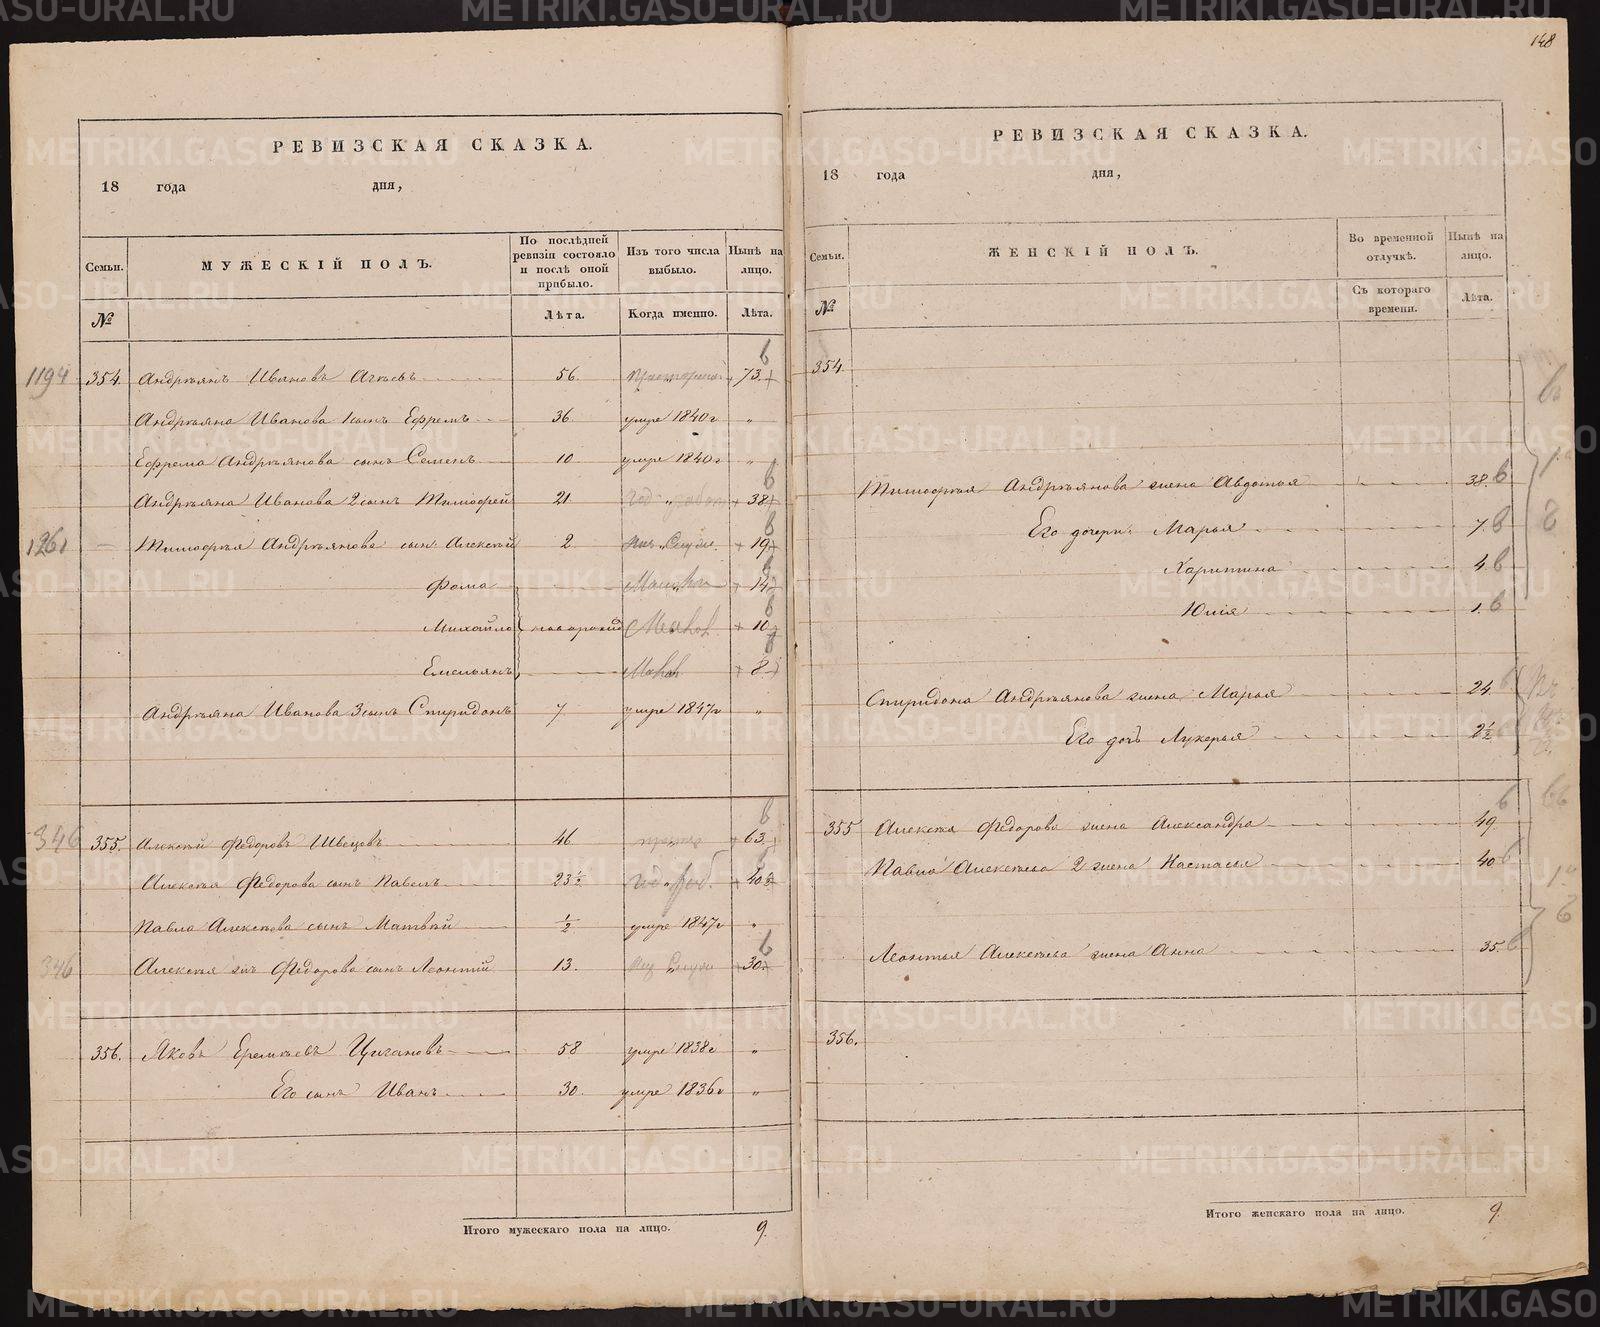 148
РЕВИЗСКАЯ СКАЗКА.
18 года дня,
Семьи.
МУЖЕСКІЙ ПОЛЪ.
По послѣдней ревизіи состояло и послѣ оной прибыло.
Изъ того числа выбыло.
Нынѣ на лицо.
№
Лѣта.
Когда именно.
Лѣта.
1194 354. Андреянъ Ивановъ 56. 73.
Андреяна Иванова 1 сынъ Ефремъ 36 умре 1840 г „
Ефрема Андреянова сынъ Семенъ 10 умре 1840 г „
Андреяна Иванова 2 сынъ Тимофей 21 38
1261 Тимофея Андреянова сынъ Алексѣй 2 19
Фома 14
Михайло новорожд 10
Емельянъ 8
Андреяна Иванова 3 сынъ Спиридонъ 7 умре 1847 г „
346 355. Алексѣй Федоровъ Швецовъ 46 63
Алексѣя Федорова сынъ Павелъ 23½ 40½
Павла Алексѣева сынъ Матвѣй ½ умре 1847 г „
346 Алексѣя Федорова сынъ Леонтій 13. 30
356. Яковъ Еремѣевъ Цыгановъ 58 умре 1838 г „
Его сынъ Иванъ 30. умре 1836 г „
Итого мужескаго пола на лицо. 9.
РЕВИЗСКАЯ СКАЗКА.
18 года дня,
Семьи.
ЖЕНСКІЙ ПОЛЪ.
Во временной отлучкѣ.
Нынѣ на лицо.
№
Съ котораго времени.
Лѣта.
354
Тимофея Андреянова жена Авдотья 38.
Его дочери: Марья 7.
Харитина 4
Юлія 1.
Спиридона Андреянова жена Марья 24
Его дочь Лукерья 2½
355 Алексѣя Федорова жена Александра 49
Павла Алексѣева 2 жена Настасья 40
Леонтья Алексѣева жена Анна 35.
356.
Итого женскаго пола на лицо. 9.
METRIKI.GASO-URAL.RU